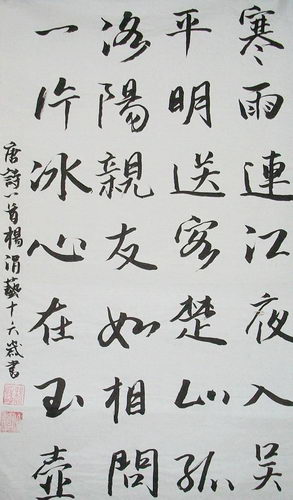 寒雨連江夜入吴
平明送客楚山孤
洛陽親友如相問
一片冰心在玉壺
唐詩一首楊涓藝十六歲書